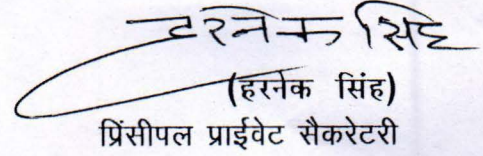 हरनेक सिंह
(हरनेक सिंह)
प्रिंसीपल प्राईवेट सैकरेटरी